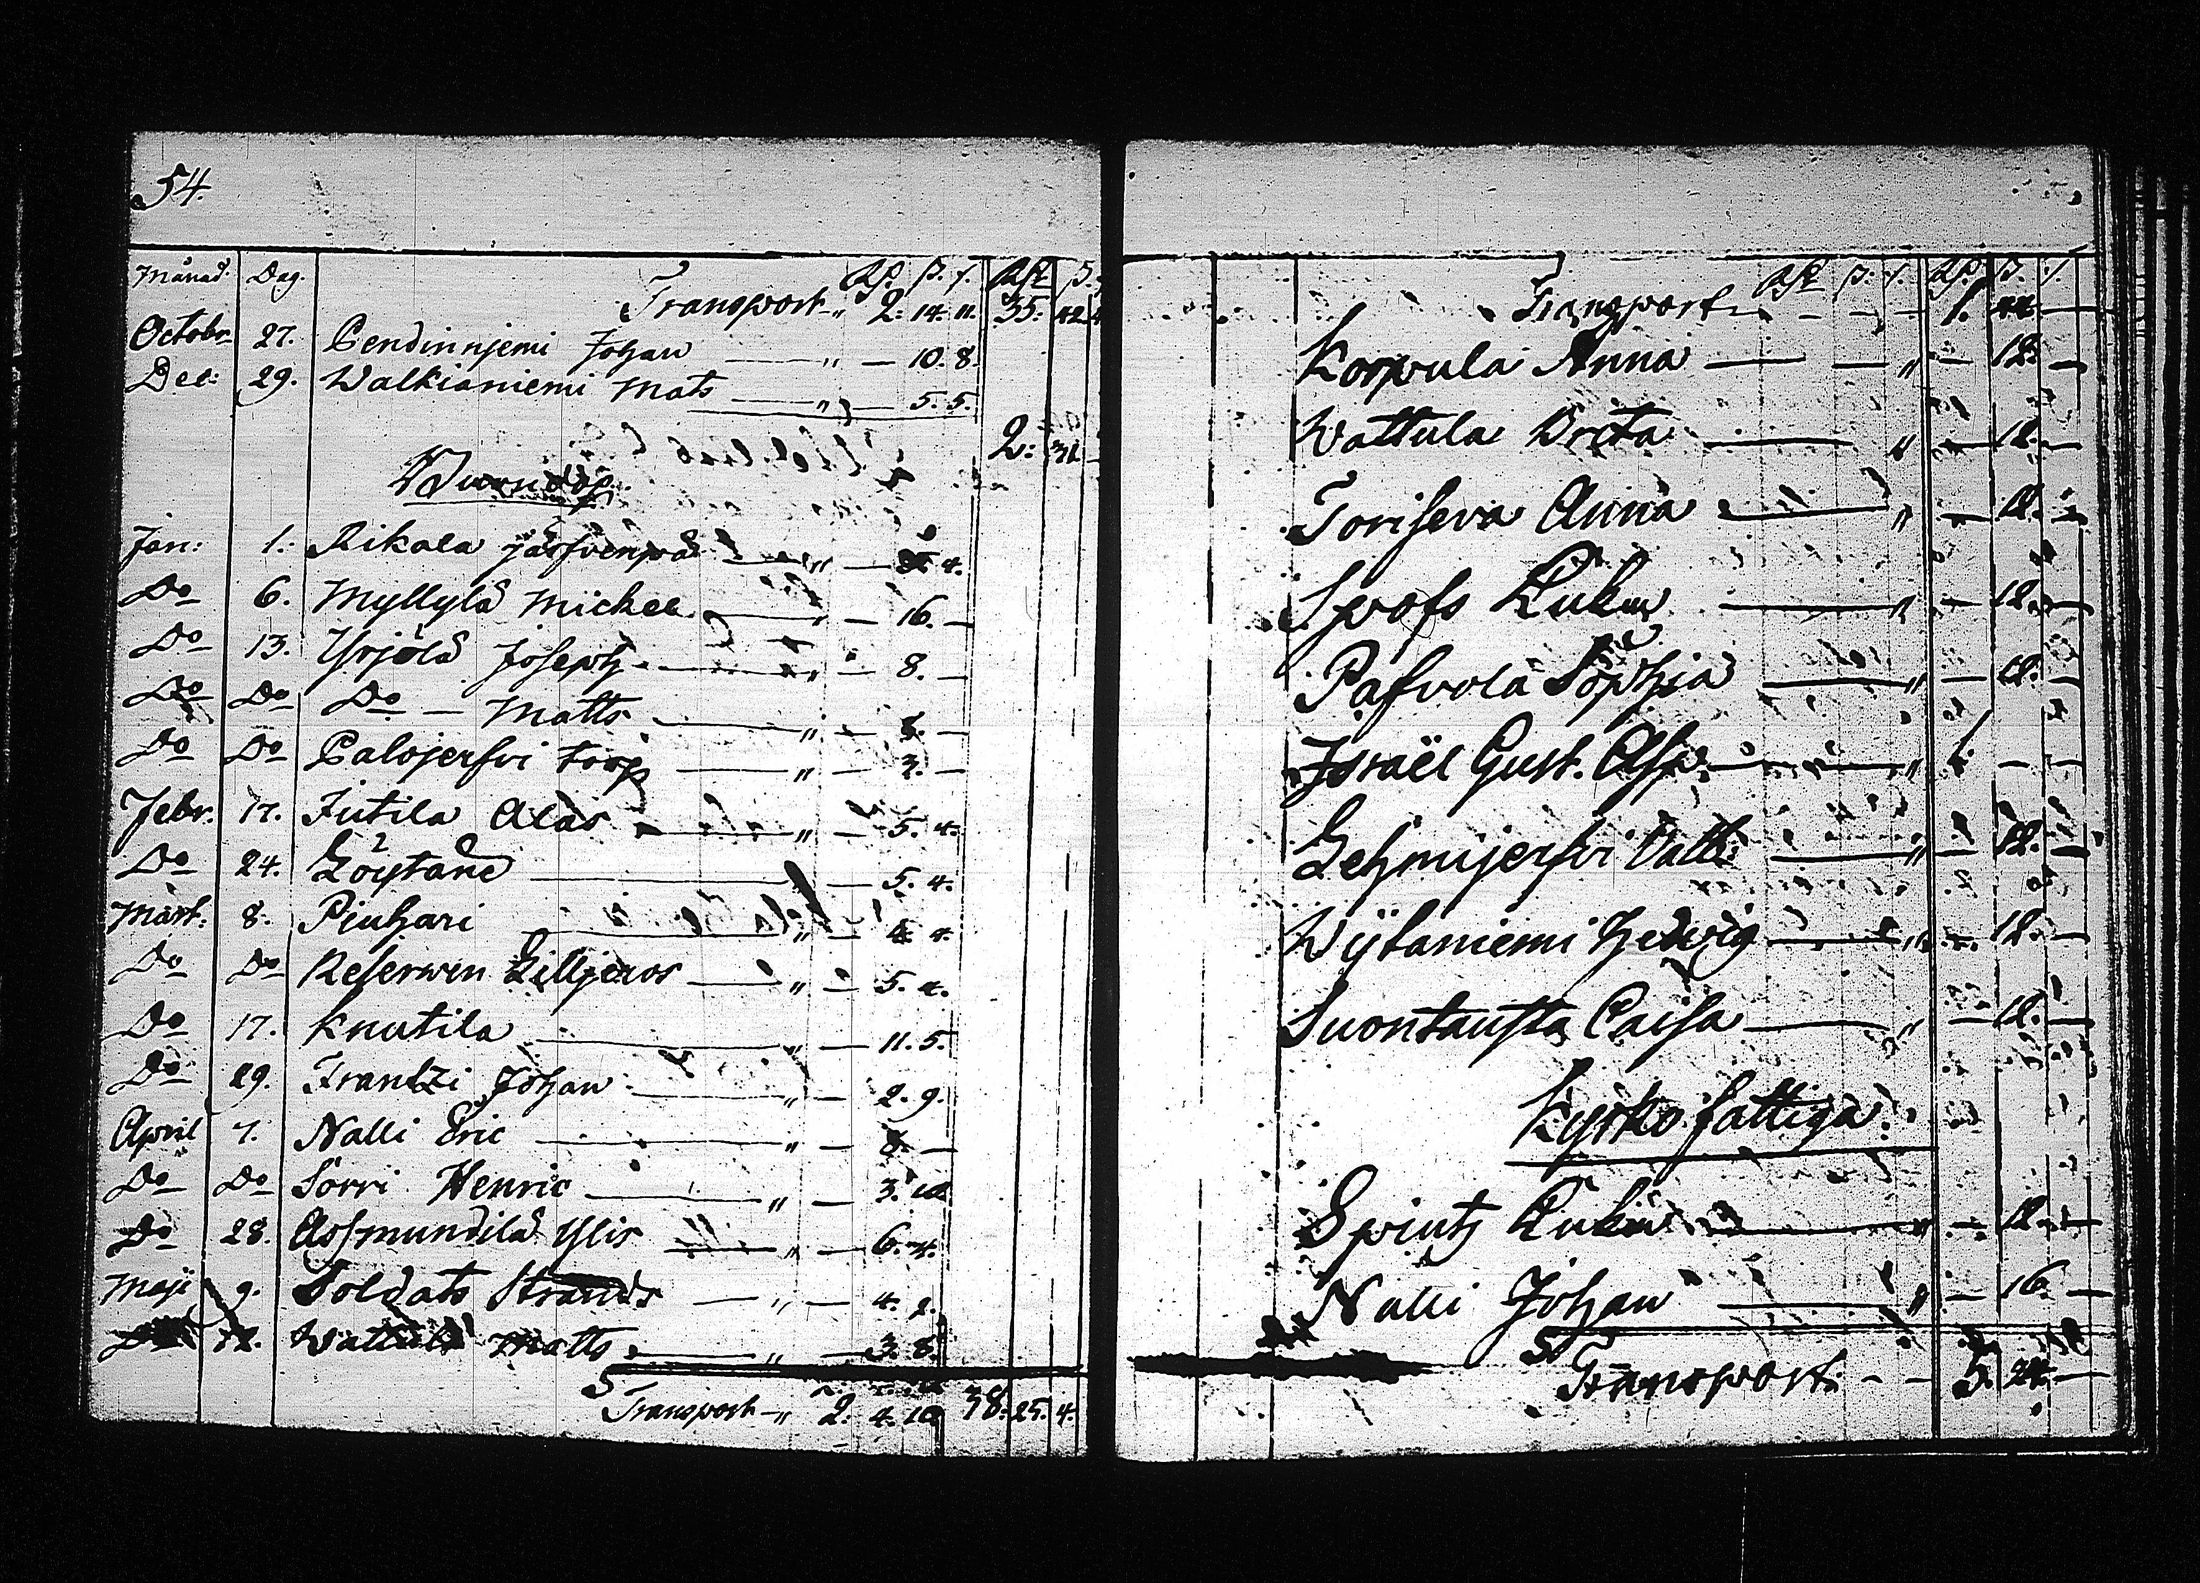 54.
Månad. Dag. Rd. ß. r. Rd. ß.
Transport „ 2. 14. 11. 35. 42.
Octobr 27. Pendinnjemi Johan — „ — 10. 8.
Dec: 29. Walkianiemi Mats — „ — 5. 5.
2. 31.
Jan: 1. Rikala järfvenpä — „ — 4.
Do 6. Myllylä Michel — „ — 16. —
Do 13. Yrjölä Joseph — „ — 8. —
Do Do Do — Matts — „ — 8. —
Do Do Palojerfvi torp — „ — 3. —
Febr. 17. Jutila Alas — „ — 5. 4.
Do 24. Löytäne — 5. 4.
Mart. 8. Piuhari — „ — 4. 4.
Do Do Reserwen Lilljeros — „ — 5. 4.
Do 17. Knutila — „ — 11. 5.
Do 29. Frantzi Johan — „ — 2. 9.
April 7. Nalli Eric — „ — 8. —
Do Do Sorri Henric — „ — 3. 10.
Do 28. Assmundila Ylis — „ — 6. 4.
Maji 9. Soldats Strands — „ — 4. 2.
12. Wattula Matts — „ — 3. 8.
Transport „ 2. 4. 10 38. 25. 4.
Rd. ß. r. Rd. ß. r.
Transport — — — 1. —
Korpula Anna — „ — 12. —
Wattula Brita — „ — 12. —
Toriseva Anna — „ — 12. —
Spofs Enkan — „ — 12. —
Pafvola Sophia — „ — 12. —
Israël Gust. — „ 1. — —
Lehmijerfvi — „ — 12. —
Wijtaniemi Hedvig — „ — 12. —
Suontausta Caisa — „ — 12. —
Kyrko fattiga.
Spints Enkan — „ — 12. —
Nalli Johan — „ — 16. —
Transport. — — 5. —